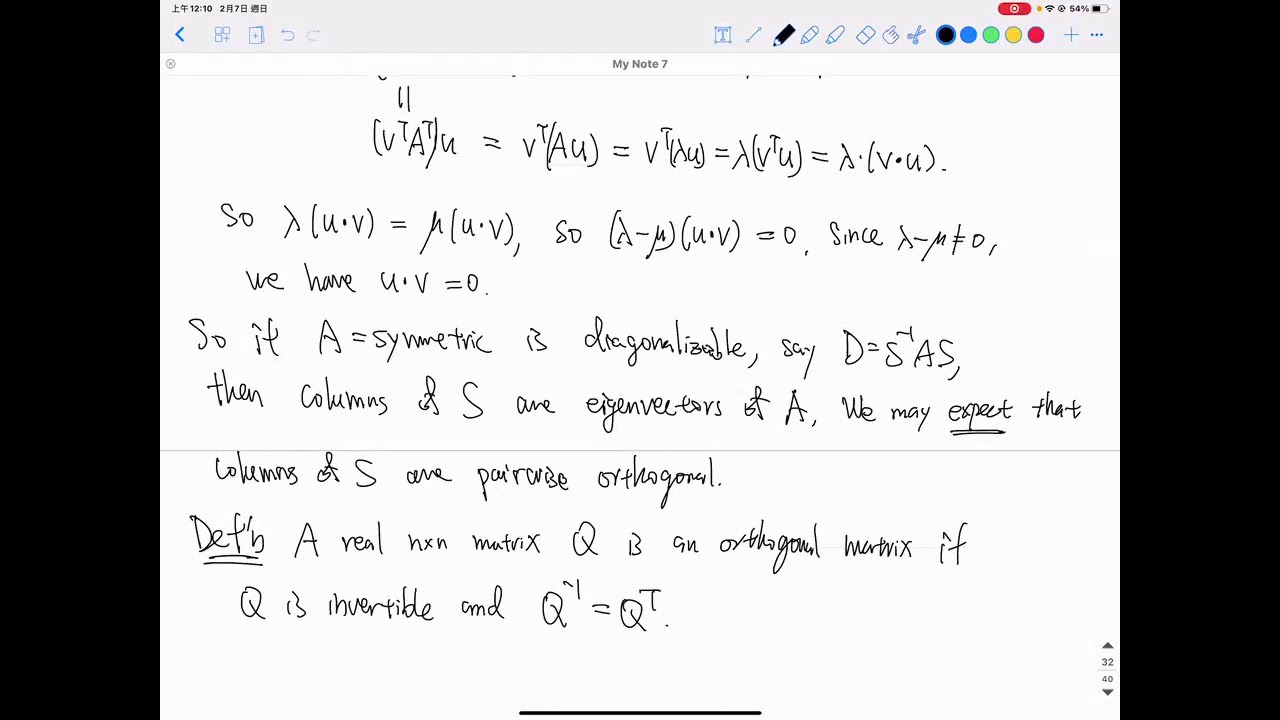 上午12:10 2月7日 週日
54%
My Note 7
(vᵀAᵀ)u = vᵀ(Au) = vᵀ(λu) = λ(vᵀu) = λ·(v·u).
So λ(u·v) = μ(u·v), so (λ-μ)(u·v) = 0. Since λ-μ≠0,
we have u·v = 0.
So if A = symmetric is diagonalizable, say D = S⁻¹AS,
then columns of S are eigenvectors of A. We may expect that
columns of S are pairwise orthogonal.
Def'n A real n×n matrix Q is an orthogonal matrix if
Q is invertible and Q⁻¹ = Qᵀ.
32
40